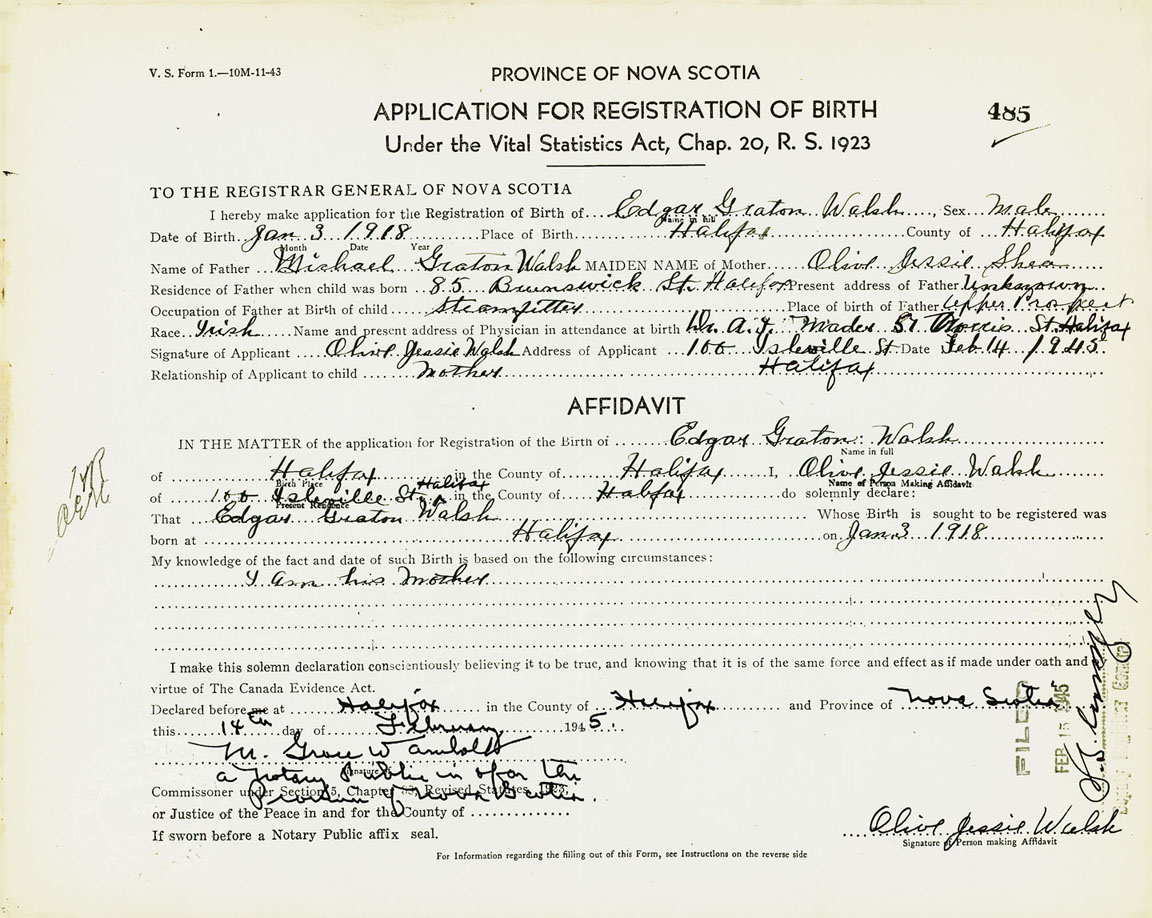 V. S. Form 1.—10M-11-43
PROVINCE OF NOVA SCOTIA
APPLICATION FOR REGISTRATION OF BIRTH
485
Under the Vital Statistics Act, Chap. 20, R. S. 1923
TO THE REGISTRAR GENERAL OF NOVA SCOTIA
I hereby make application for the Registration of Birth of Edgar Graton Walsh, Sex Male
Name in full
Date of Birth Jan 3 1918 Place of Birth Halifax County of Halifax
Month Date Year
Name of Father Michael Graton Walsh MAIDEN NAME of Mother Olive Jessie Shea
Residence of Father when child was born 85 Brunswick St. Halifax Present address of Father Unknown
Occupation of Father at Birth of child Steamfitter Place of birth of Father Upper Prospect
Race Irish Name and present address of Physician in attendance at birth Dr. A. Mader St. Halifax
Signature of Applicant Olive Jessie Walsh Address of Applicant 166 Isleville St. Date Feb 14 1945
Relationship of Applicant to child Mother Halifax
AFFIDAVIT
IN THE MATTER of the application for Registration of the Birth of Edgar Graton Walsh
Name in full
of Halifax in the County of Halifax I, Olive Jessie Walsh
Birth Place Name of Person Making Affidavit
of 166 Isleville St Halifax in the County of Halifax do solemnly declare:
Present Residence
That Edgar Graton Walsh Whose Birth is sought to be registered was
born at Halifax on Jan 3 1918
My knowledge of the fact and date of such Birth is based on the following circumstances:
I Am his Mother
I make this solemn declaration conscientiously believing it to be true, and knowing that it is of the same force and effect as if made under oath and
virtue of The Canada Evidence Act.
Declared before me at Halifax in the County of Halifax and Province of Nova Scotia
this 14th day of February 1945.
M. Grace Wambolt
a Notary Public in & for the
Signature of
Province of Nova Scotia.
Commissioner under Section 5, Chapter Revised Statutes 1923,
or Justice of the Peace in and for the County of
If sworn before a Notary Public affix seal.
FILED
FEB 15 1945
Olive Jessie Walsh
Signature of Person making Affidavit
For Information regarding the filling out of this Form, see Instructions on the reverse side